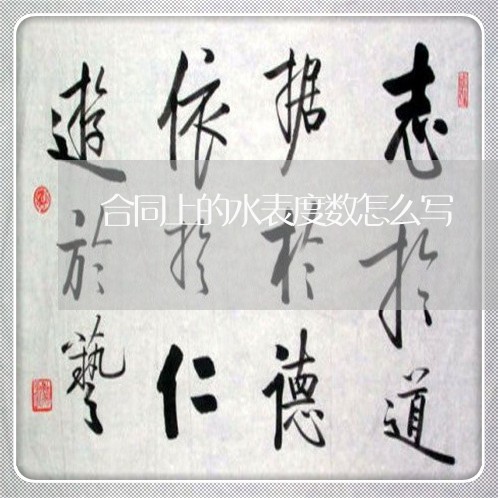 志於道
据於德
依於仁
遊於藝
合同上的水表度数怎么写